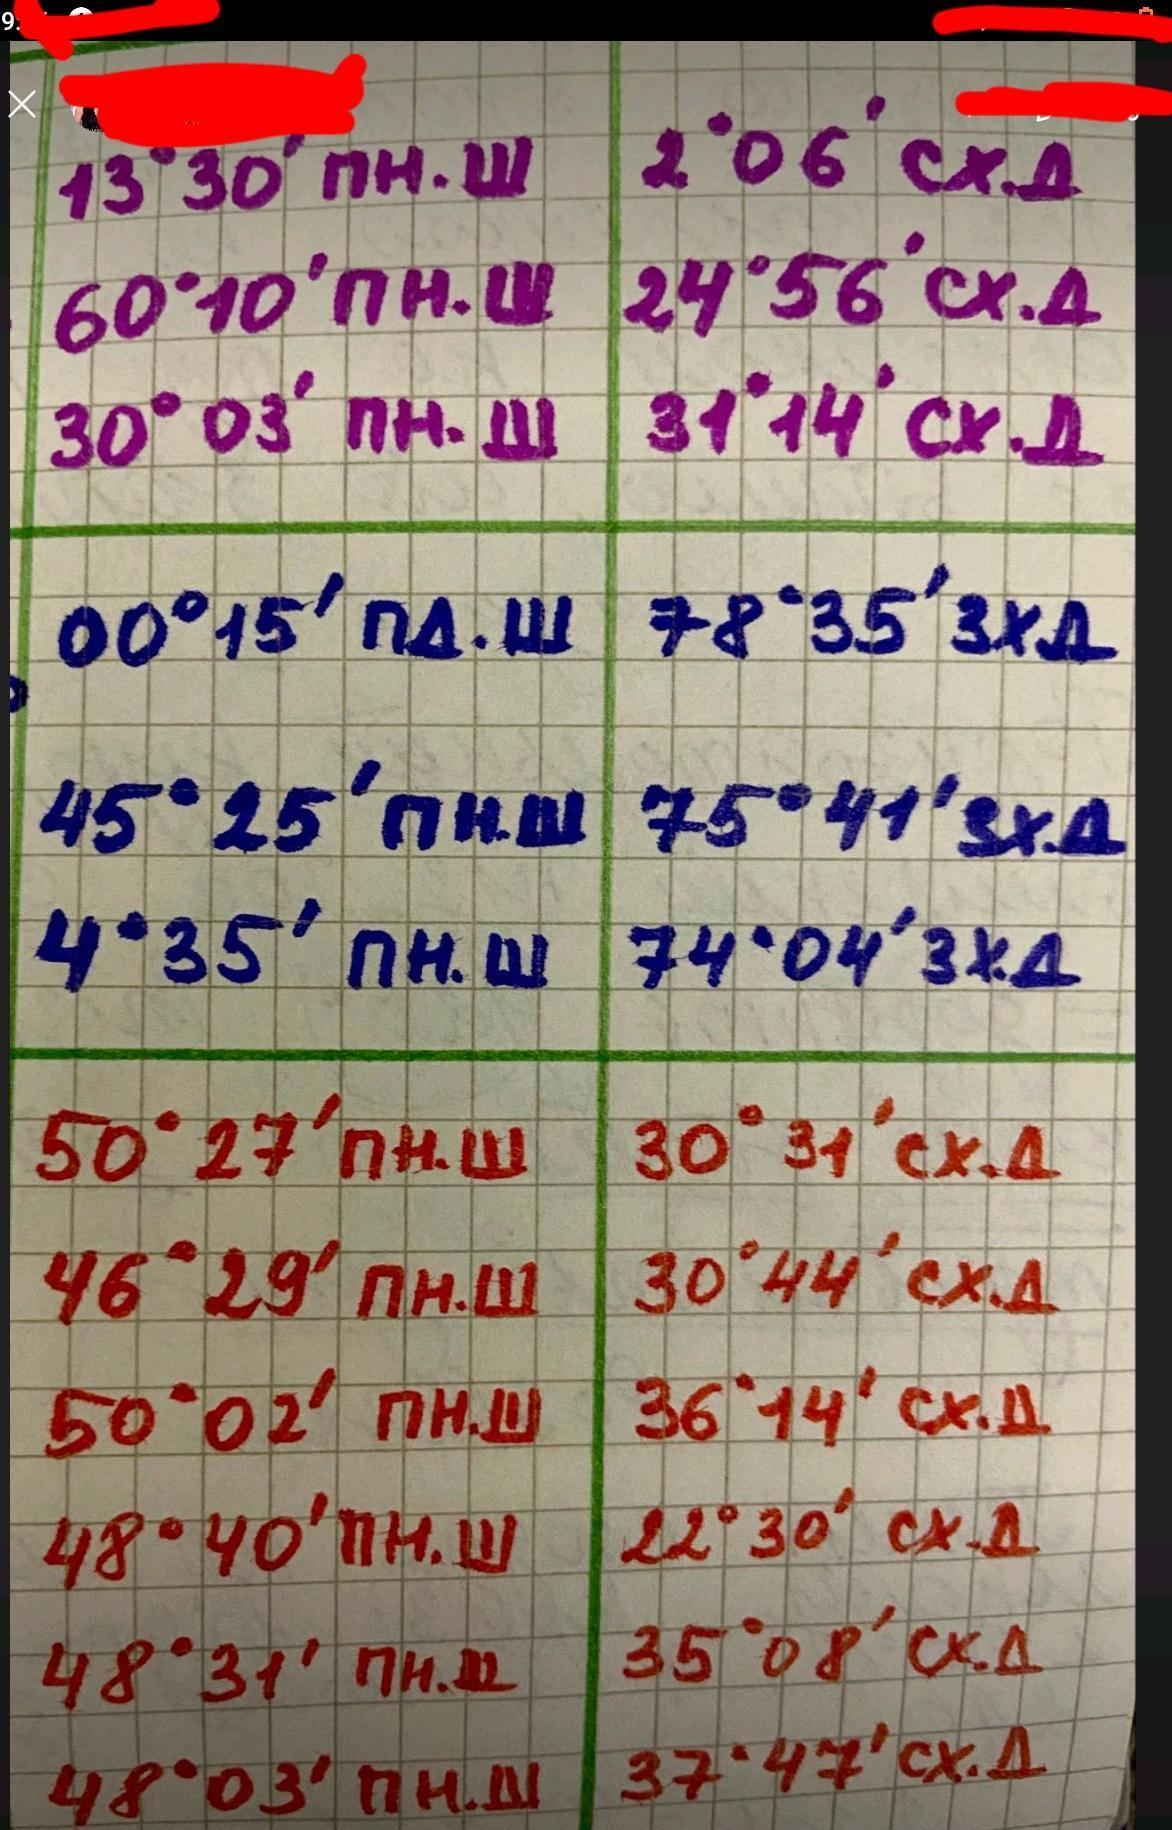 13°30' ПН.Ш 2°06' СХ.Д
60°10' ПН.Ш 24°56' СХ.Д
30°03' ПН.Ш 31°14' СХ.Д
00°15' ПД.Ш 78°35' ЗХД
45°25' ПН.Ш 75°41' ЗХ.Д
4°35' ПН.Ш 74°04' ЗХ.Д
50°27' ПН.Ш 30°31' СХ.Д
46°29' ПН.Ш 30°44' СХ.Д
50°02' ПН.Ш 36°14' СХ.Д
48°40' ПН.Ш 22°30' СХ.Д
48°31' ПН.Ш 35°08' СХ.Д
48°03' ПН.Ш 37°47' СХ.Д